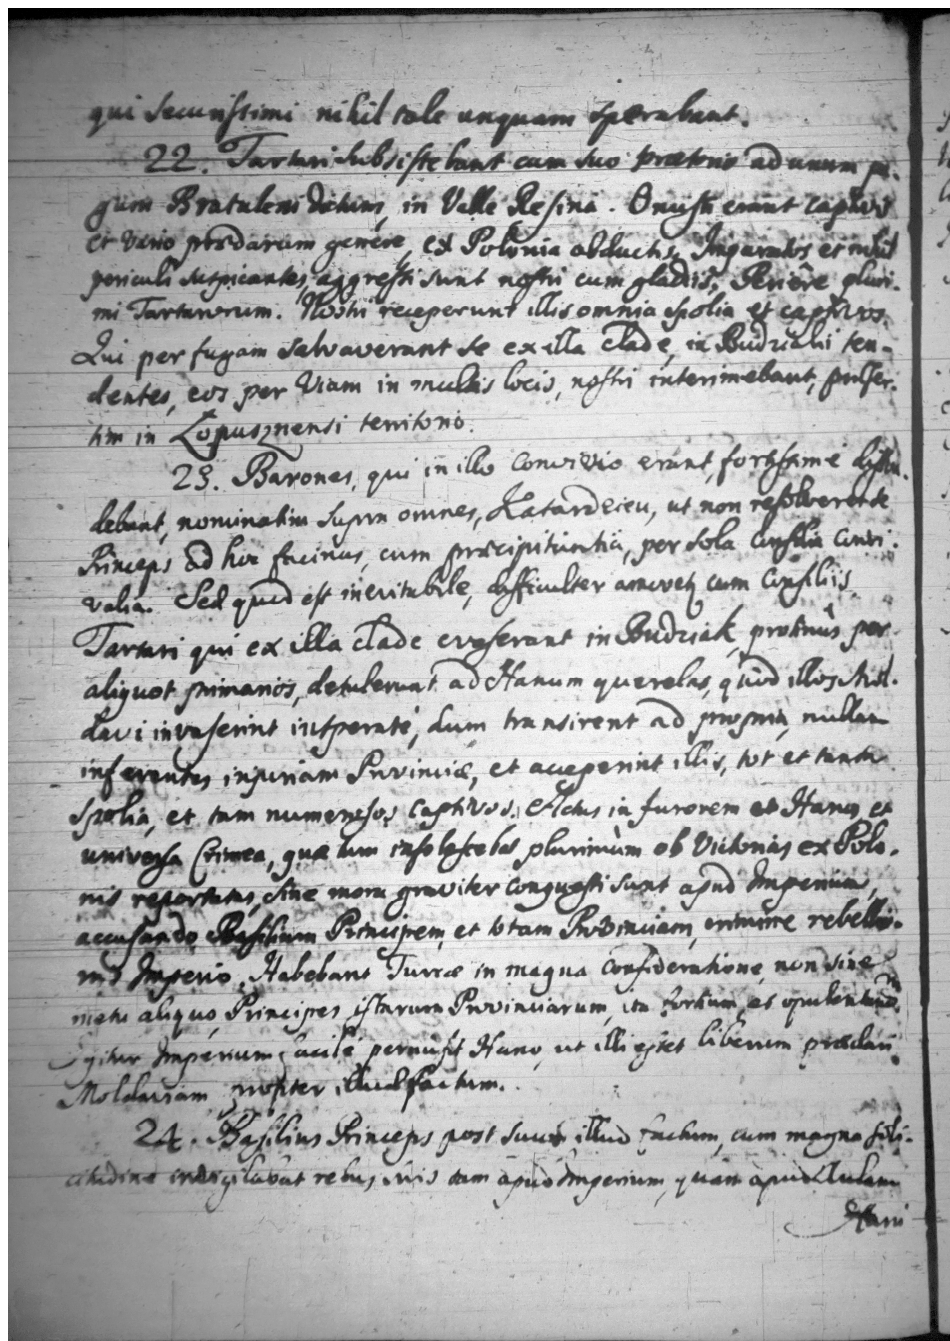 qui securissimi nihil tale unquam sperabant.
22. Tartari subsistebant cum suo prætorio ad unum pa-
gum Bratuleni dictum, in Valle Resina. Onusti erant captivis
et vario prædarum genere, ex Polonia abductis, Imparatos et nihil
periculi suspicantes, aggressi sunt nostri cum gladiis, Periêre pluri-
mi Tartarorum. Nostri receperunt illis omnia spolia et captivos.
Qui per fugam salvaverant se ex illa clade, in Budziaki ten-
dentes, eos per viam in multis locis, nostri interimebant, præser-
tim in Lopusznensi territorio.
23. Barones, qui in illo convivio erant, fortissime dissua-
debant, nominatim supra omnes, Katardzieu, ut non resolveret se
Princeps ad hoc facinus, cum præcipitantia, per sola consilia convi-
valia. Sed quod est inevitabile, difficulter amovetur cum consiliis.
Tartari qui ex illa clade evaserant in Budziak, protinùs per
aliquot primarios, detulerunt ad Hanum querelas, quòd illos Mol-
davi invaserint insperatè, dum transirent ad propria, nullam
inferentes injuriam Provinciæ, et acceperint illis, tot et tanta
spolia, et tam numerosos captivos. Actus in furorem et Hanus, et
universa Crimea, quæ tum insolescebat plurimùm ob victorias ex Polo-
nis reportatas, sine mora graviter conquesti sunt apud Imperium,
accusando Basilium Principem, et totam Provinciam, crimine rebellio-
nis Imperio. Habebant Turcæ in magna consideratione, non sine
metu aliquo, Principes istarum Provinciarum, ita fortium, et opulentarum.
Igitur Imperium facilè permisit Hano, ut illi esset liberum prædari
Moldaviam propter illud factum.
24. Basilius Princeps post suum illud factum, cum magna soli-
citudine invigilabat rebus suis tam apud Imperium, quam apud Aulam
Hani